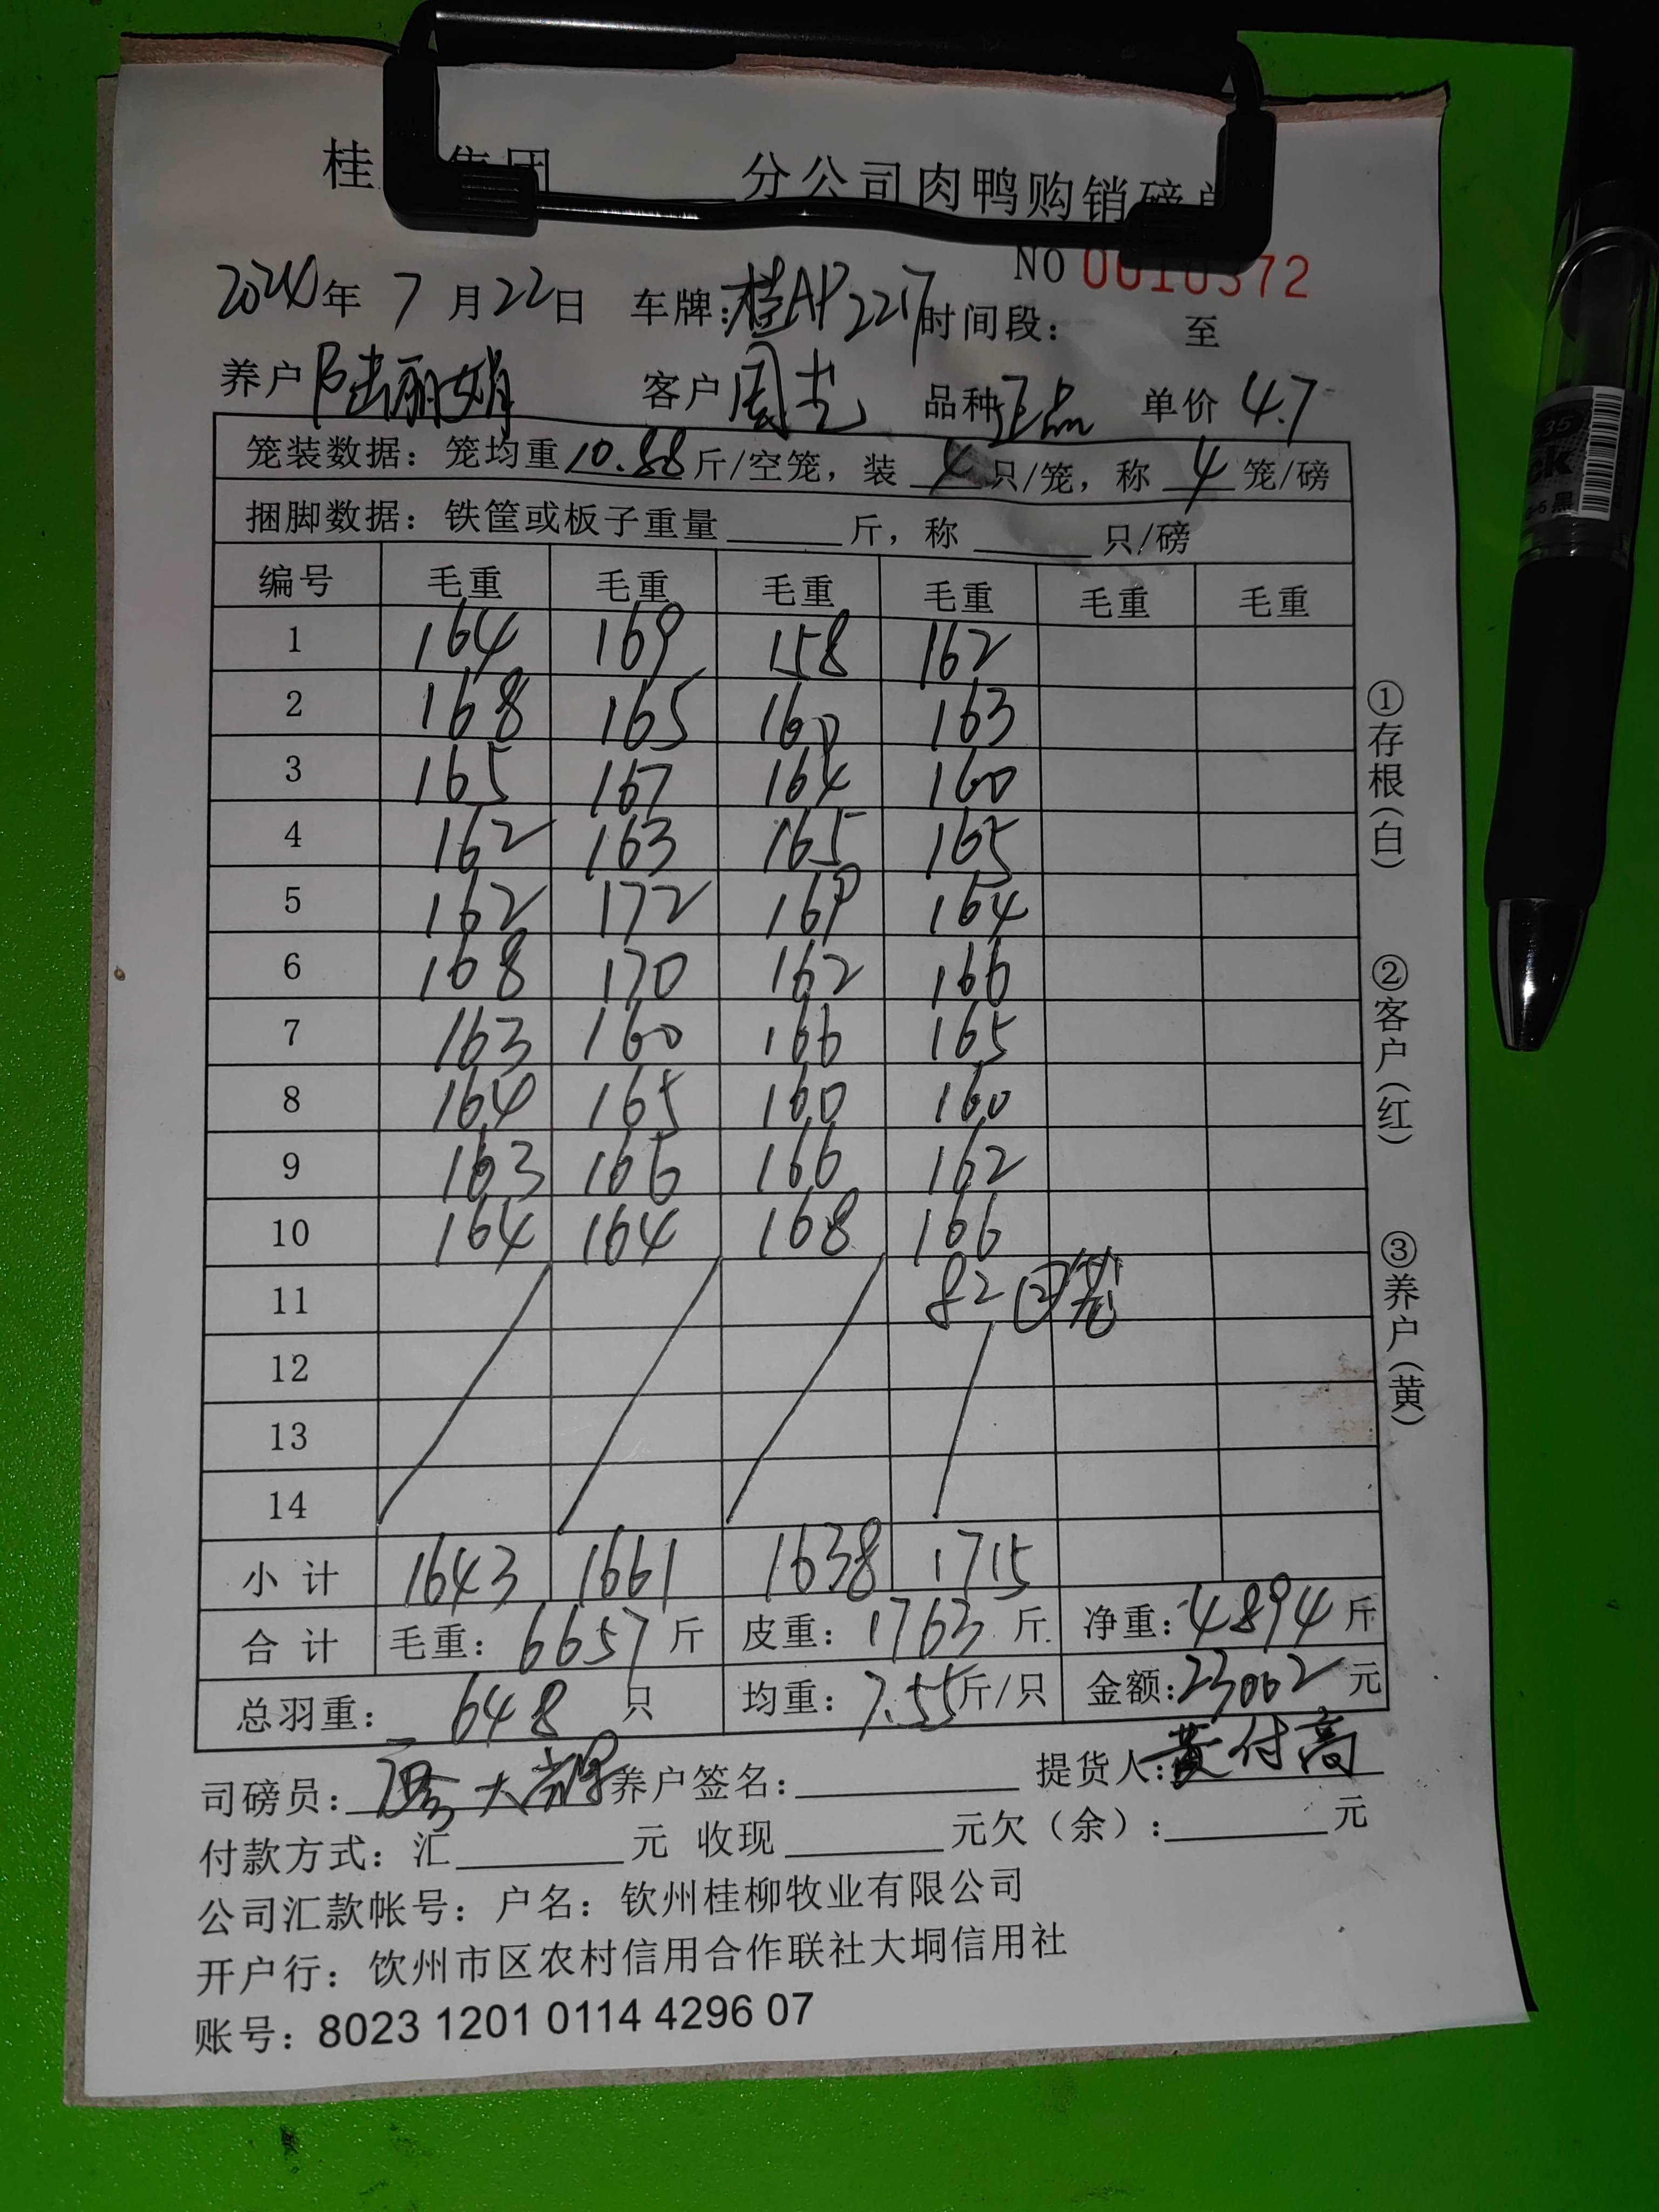 桂 集团 分公司肉鸭购销磅单
NO 0010372
2024年 7月22日 车牌:桂AP2217 时间段: 至
养户 陆丽娟 客户 周光 品种 单价 4.7
笼装数据: 笼均重10.88斤/空笼, 装 4 只/笼, 称 4 笼/磅
捆脚数据: 铁筐或板子重量 斤, 称 只/磅
编号 毛重 毛重 毛重 毛重 毛重 毛重
1 164 169 158 162
2 168 165 160 163
3 165 167 164 160
4 162 163 165 165
5 162 172 169 164
6 168 170 162 166
7 163 160 166 165
8 164 165 160 160
9 163 166 166 162
10 164 164 168 166
11 82 ②笼
12
13
14
小计 1643 1661 1638 1715
合计 毛重: 6657斤 皮重: 1763斤 净重: 4894斤
总羽重: 648 只 均重: 7.55斤/只 金额: 23002元
司磅员: 养户签名: 提货人: 黄付高
付款方式: 汇 元 收现 元欠(余): 元
公司汇款帐号: 户名: 钦州桂柳牧业有限公司
开户行: 钦州市区农村信用合作联社大垌信用社
账号: 8023 1201 0114 4296 07
①存根(白)
②客户(红)
③养户(黄)